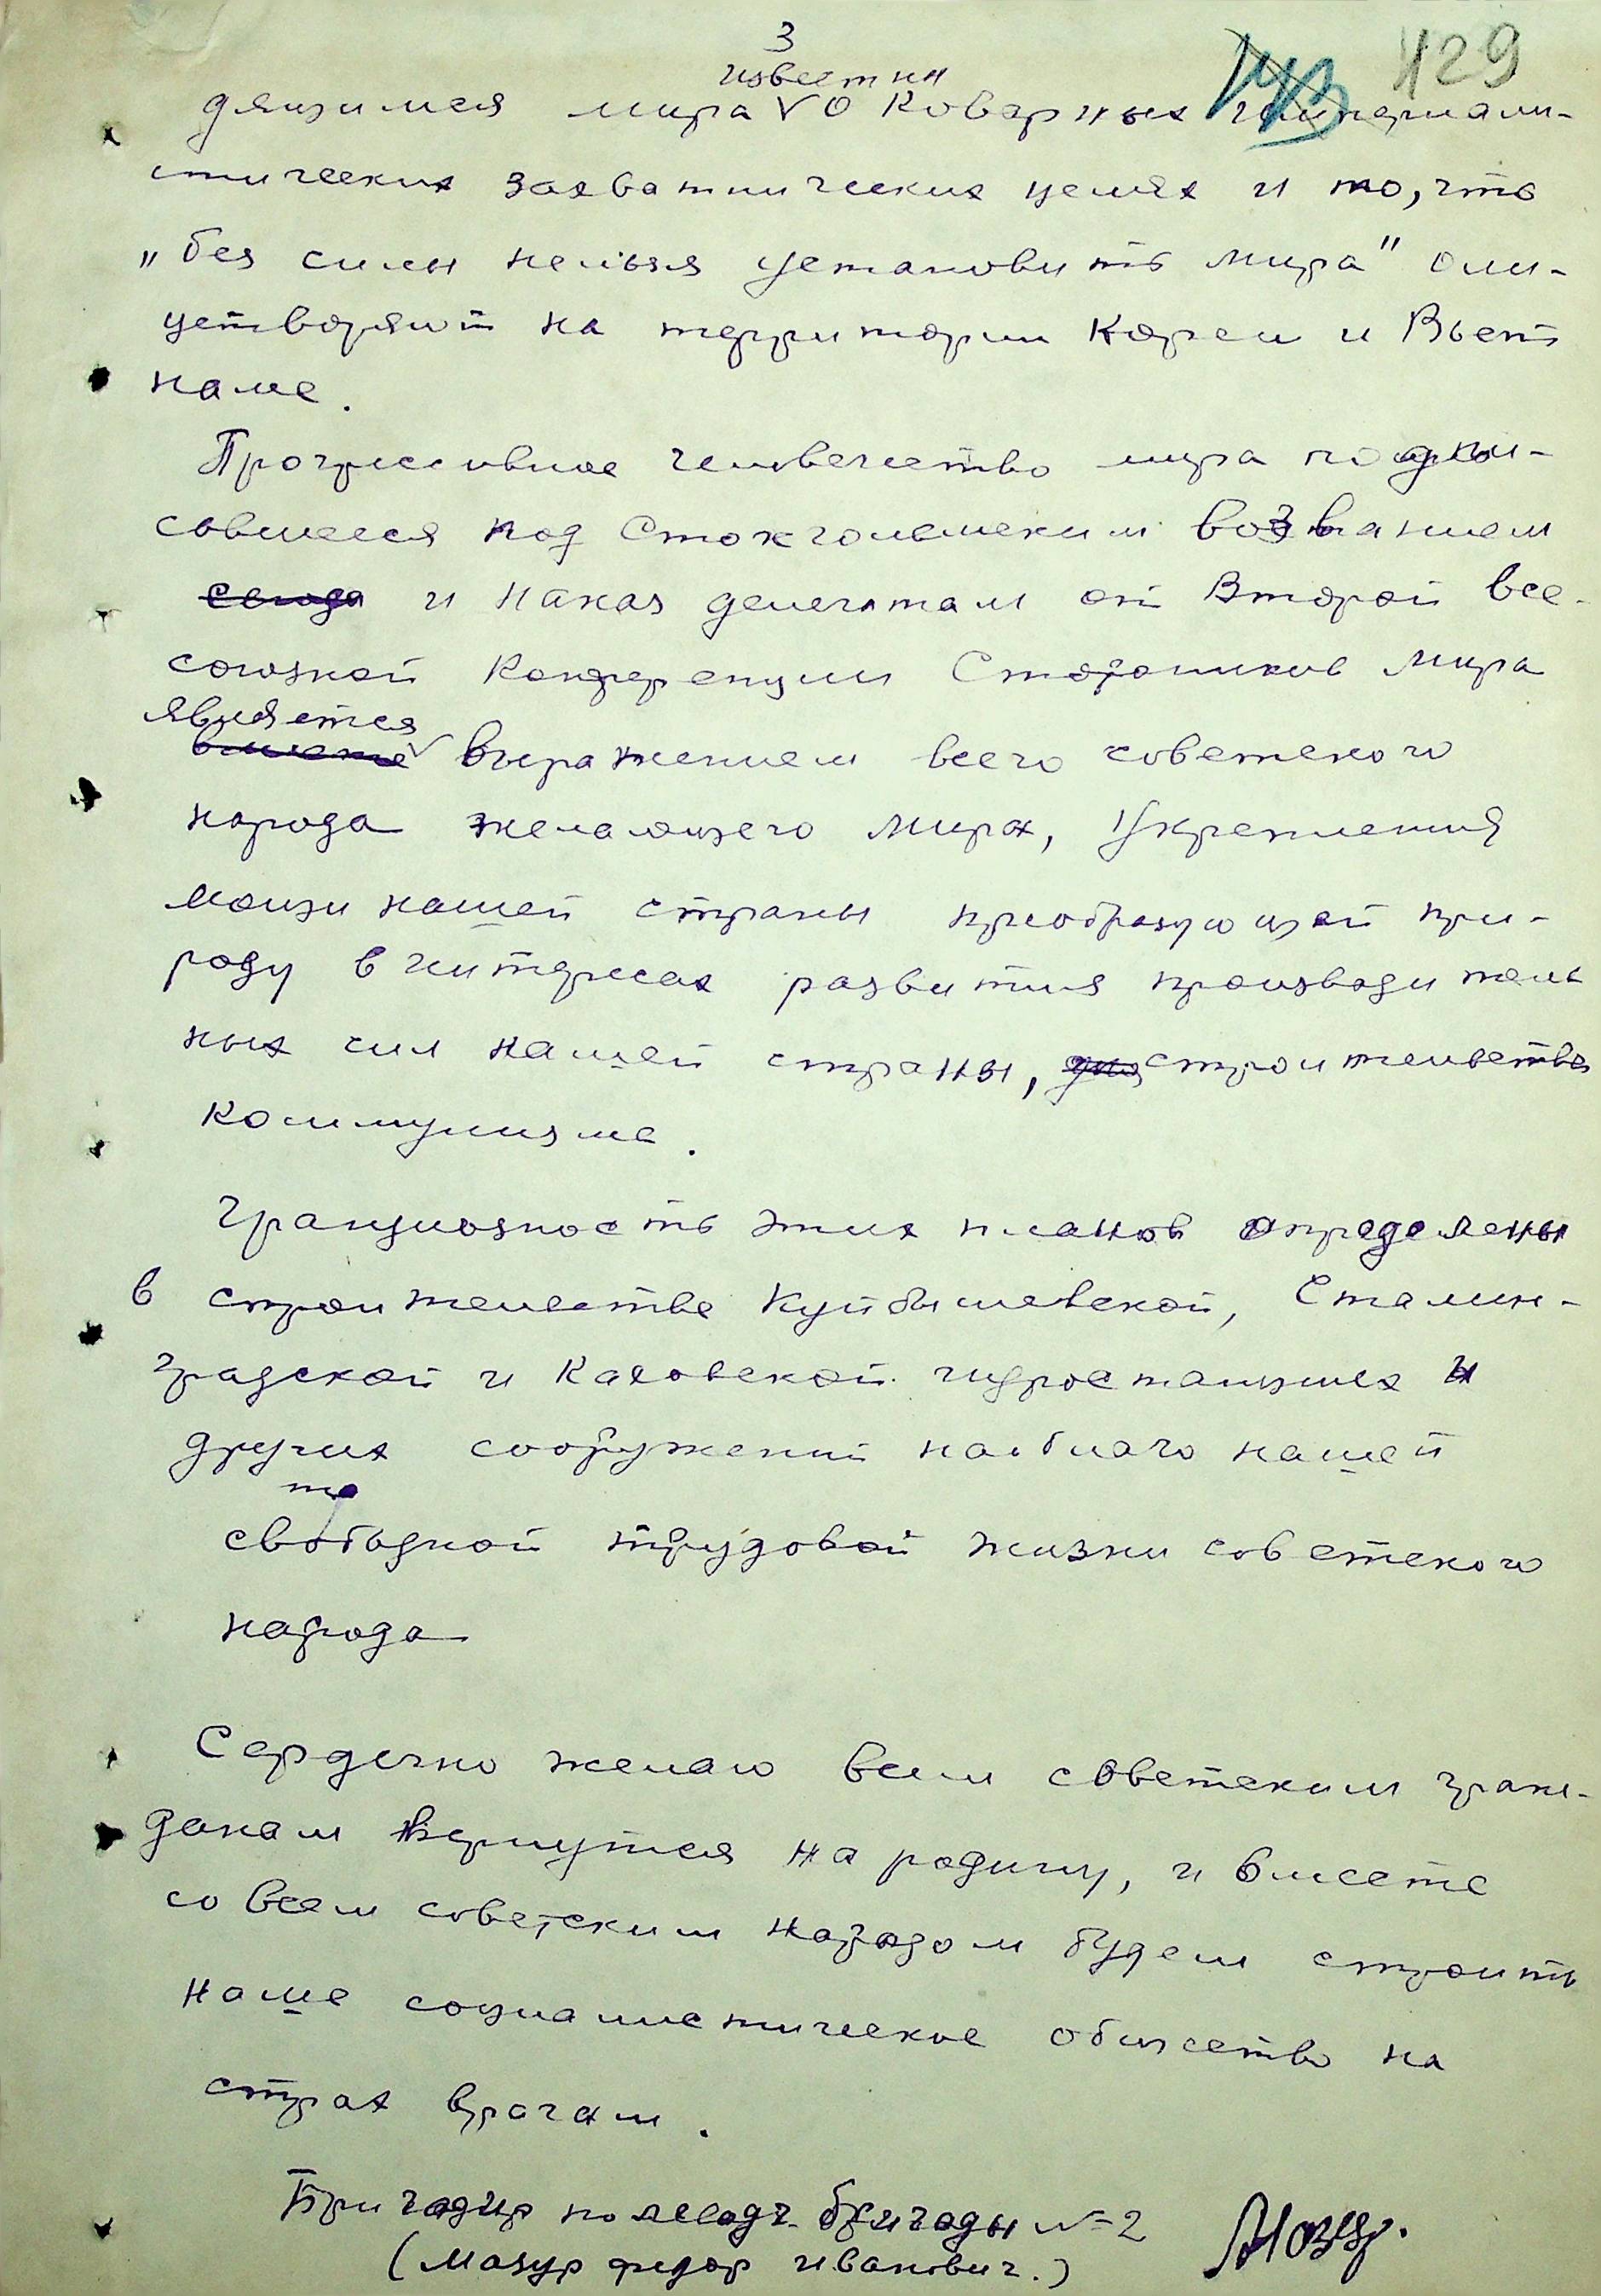 3
429
известны
дящимся мира V о коварных империали-
стических захватнических целях и то, что
"без силы нельзя установить мира" оли-
цетворяют на территории Кореи и Вьет
наме.
Прогрессивное человечество мира подпи-
савшееся под Стокгольмским воззванием
и наказ делегатам от Второй все-
союзной Конференции Сторонников мира
является
выражением всего советского
народа желающего мира, укрепления
мощи нашей страны преобразующей при-
роду в интересах развития производитель
ных сил нашей страны, строительства
Коммунизма.
Грандиозность этих планов определены
в строительстве Куйбышевской, Сталин-
градской и Каховской гидростанциях и
других сооружений на благо нашей
свободной трудовой жизни советского
народа
Сердечно желаю всем советским граж-
данам вернутся на родину, и вместе
со всем советским народом будем строить
наше социалистическое общество на
страх врагам.
Бригадир полеводч. бригады №2
(Мазур Федор Иванович.)
Мазур.